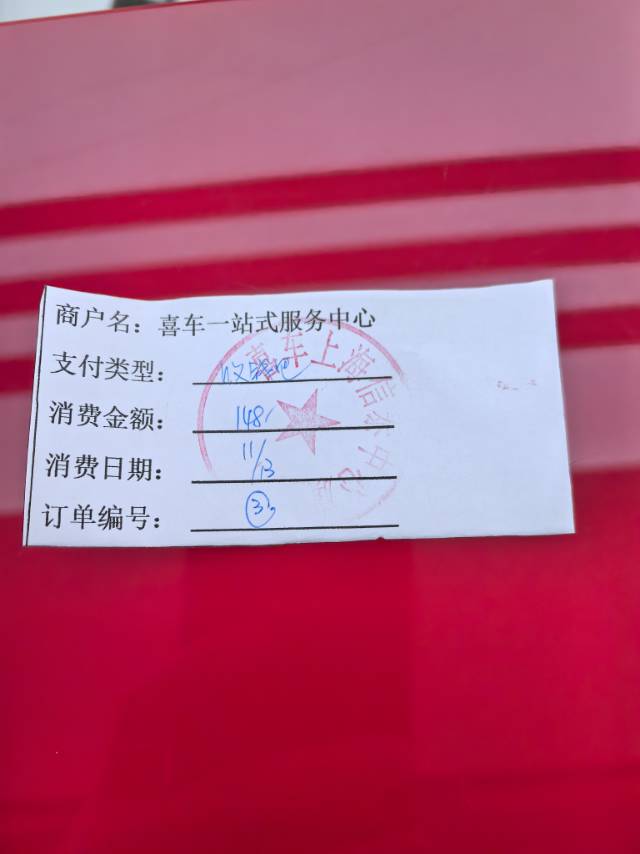 商户名：喜车一站式服务中心
支付类型：收钱吧
消费金额：148
消费日期：11/13
订单编号：
喜车上海信